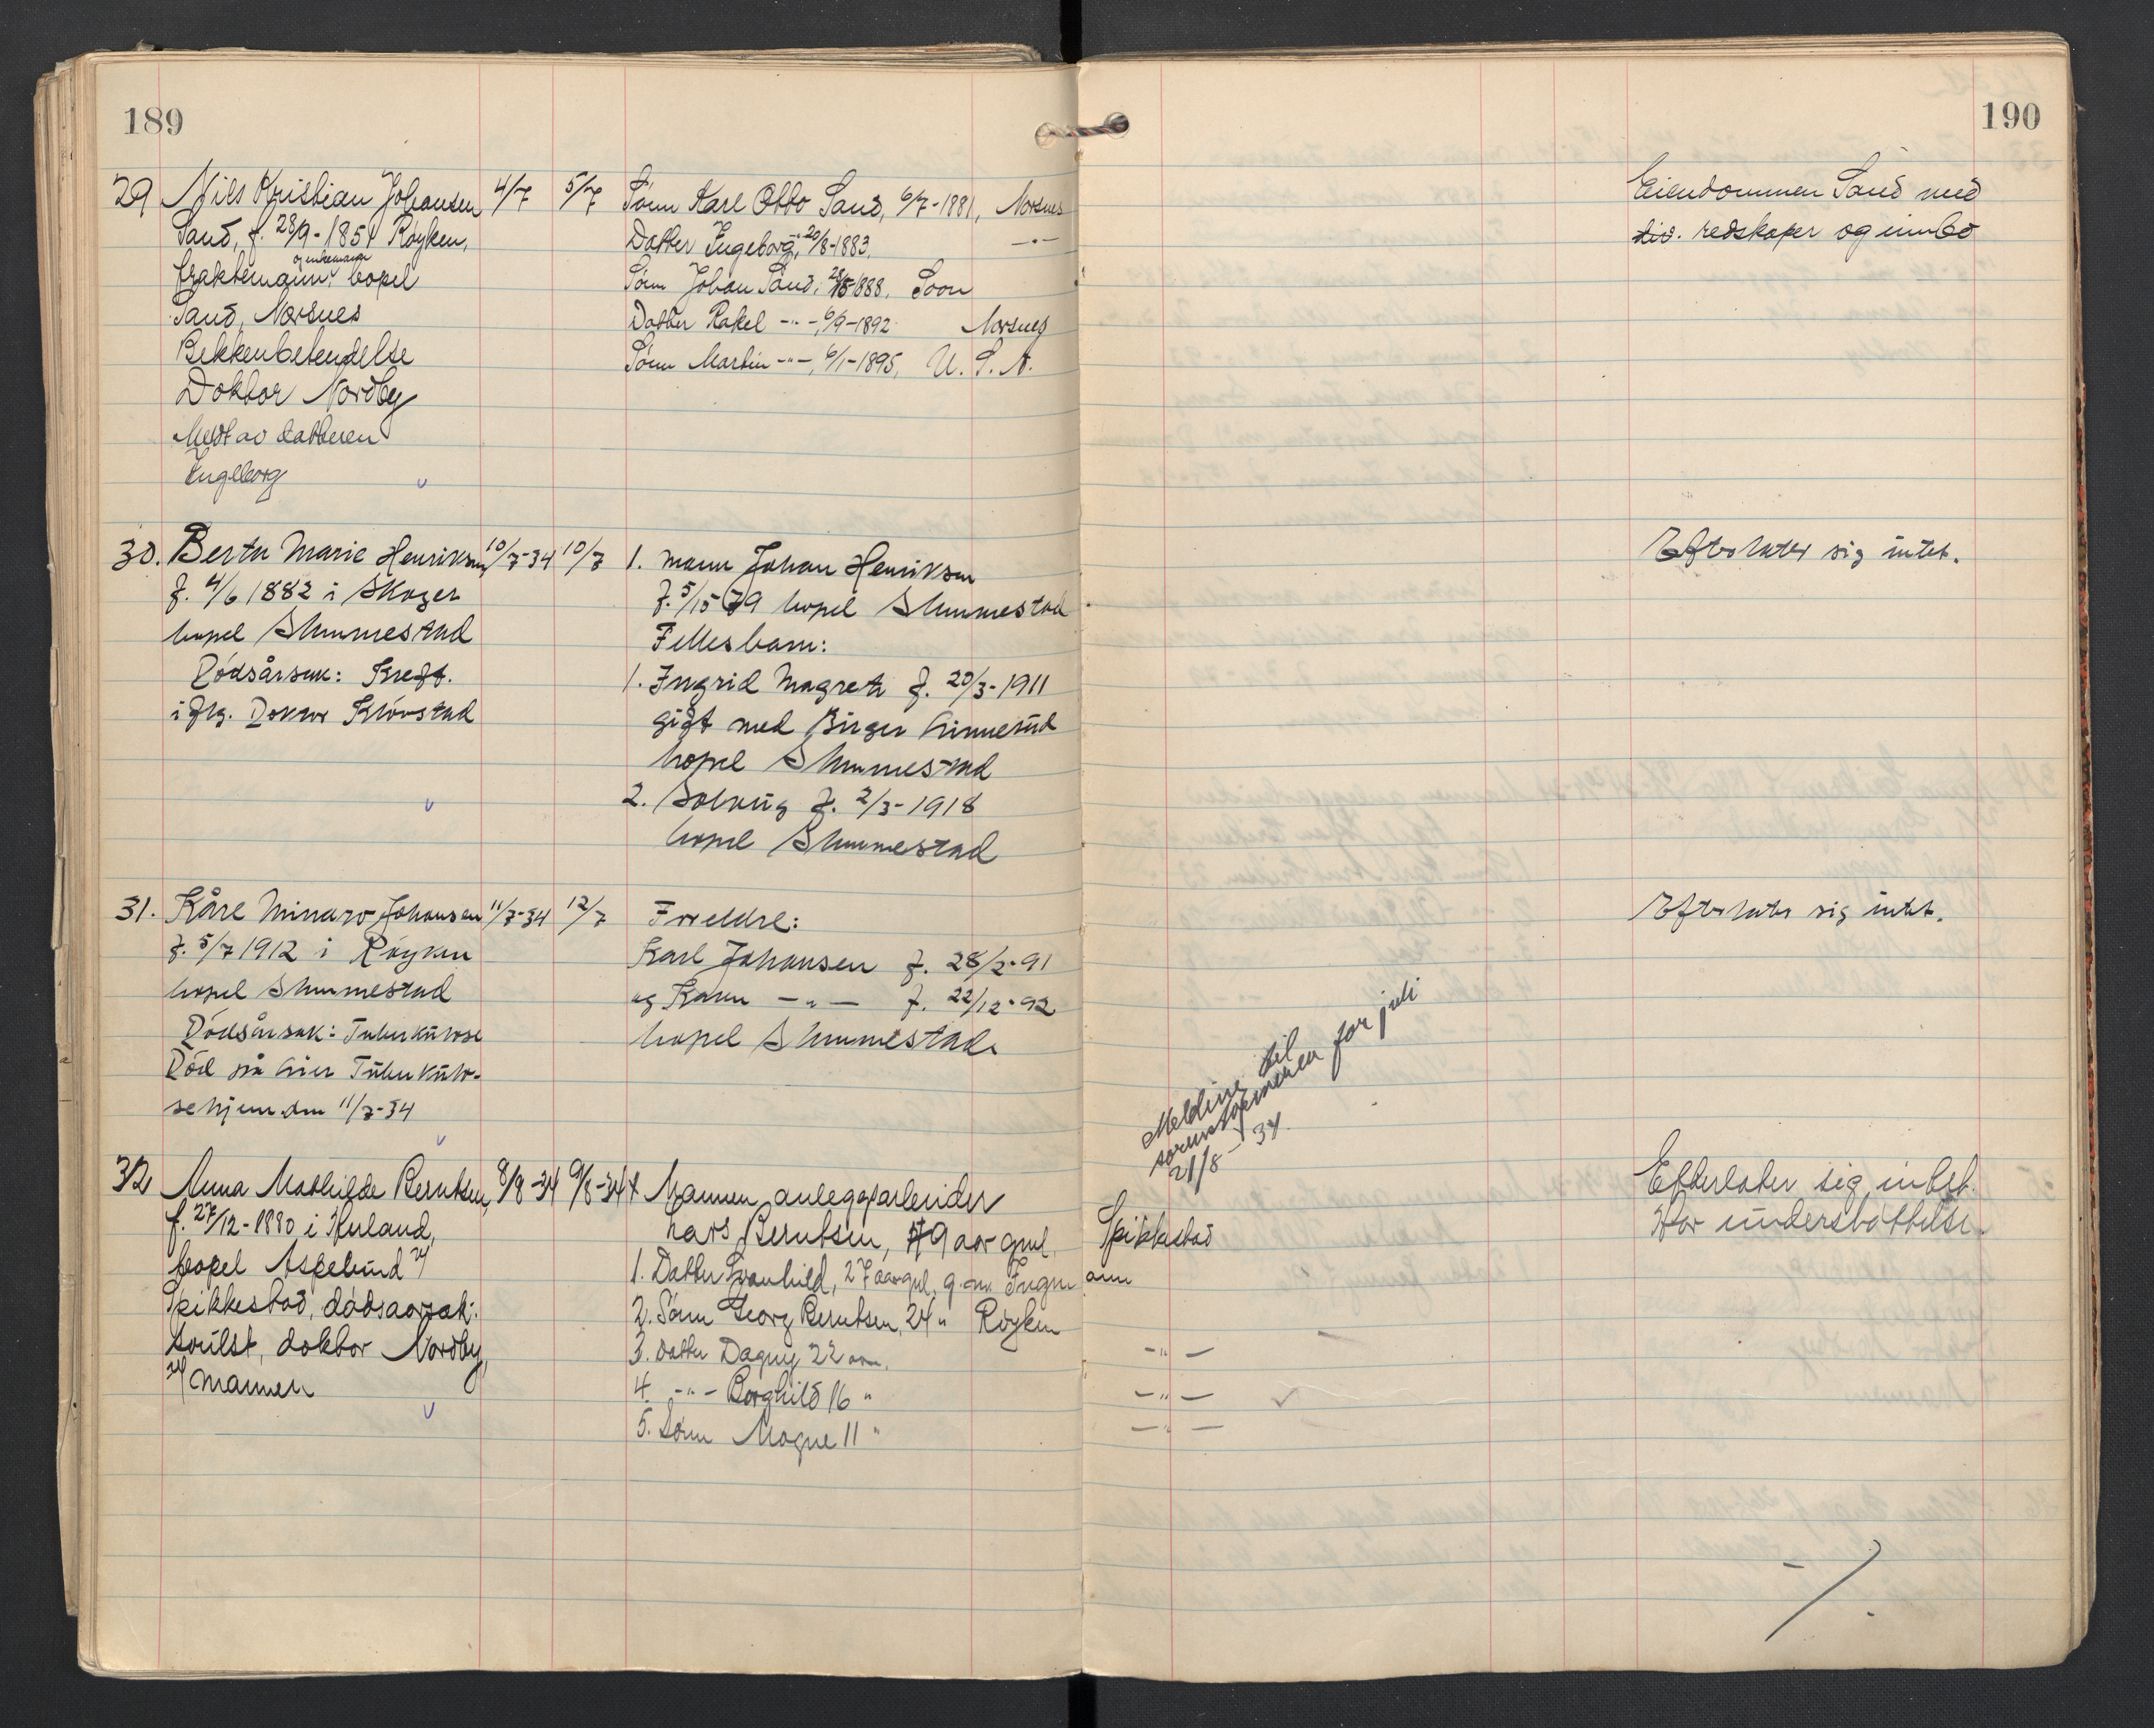 189
29 Nils Kristian Johansen 4/7 5/7 Sønn Karl Otto Sand, 6/7-1881, Nærsnes
Sand, f. 28/9-1851 Røyken, Datter Ingeborg -"- 20/8-1883. -"-
og enkemann
fraktemann, bopel Sønn Johan Sand, 1888, Soon
Sand, Nærsnes Datter Rakel -"-, 6/9-1892 Nærsnes
Bekkenbetendelse Sønn Martin -"-, 6/1-1895, U.S.A.
Doktor Nordby
Meldt av datteren
Ingeborg
30. Berta Marie Henriksen 10/7-34 10/7 1. mann Johan Henriksen
f. 4/6 1882 i Skoger f. 5/15 79 bopel Slemmestad.
bopel Slemmestad Fellesbarn:
Dödsårsak: Kreft. 1. Ingrid Magrete f. 20/3-1911
iflg. Doktor Klövstad gift med Birger
bopel Slemmestad
2. Solveig f. 2/3-1918
bopel Slemmestad
31. Kåre Johansen 11/7-34 12/7 Foreldre:
f. 5/7 1912 i Röyken Karl Johansen f. 28/2-91
bopel Slemmestad og Karen -"- f. 22/12-92
Dödsårsak: Tuberkülose bopel Slemmestad.
Död på Lier Tüberkülo-
sehjem den 11/7-34
32 Anna Mathilde Berntsen, 8/8-34 9/8-34 Mannen anleggsarbeider
f. 27/12-1880 i Hurland, Lars Berntsen, 49 aar gml. Spikkestad
bopel Askelund 1. Datter Svanhild, 27 aar gml, g. m. Ingemann
Spikkestad, dødsaarsak: 2. Sønn Georg Berntsen, 24 " Røyken
svülst, doktor Nordby, 3. Datter Dagny 22 aar. -"-
mannen 4. -"- Borghild 16 " -"-
5. Sønn Magne 11 " -"-
190
Eiendommen Sand med
div. redskaper og innbo
Efterlater sig intet.
Efterlater sig intet.
Melding til
sorenskriveren for juli
21/8-34.
Efterlater sig intet.
Har understøttelse.